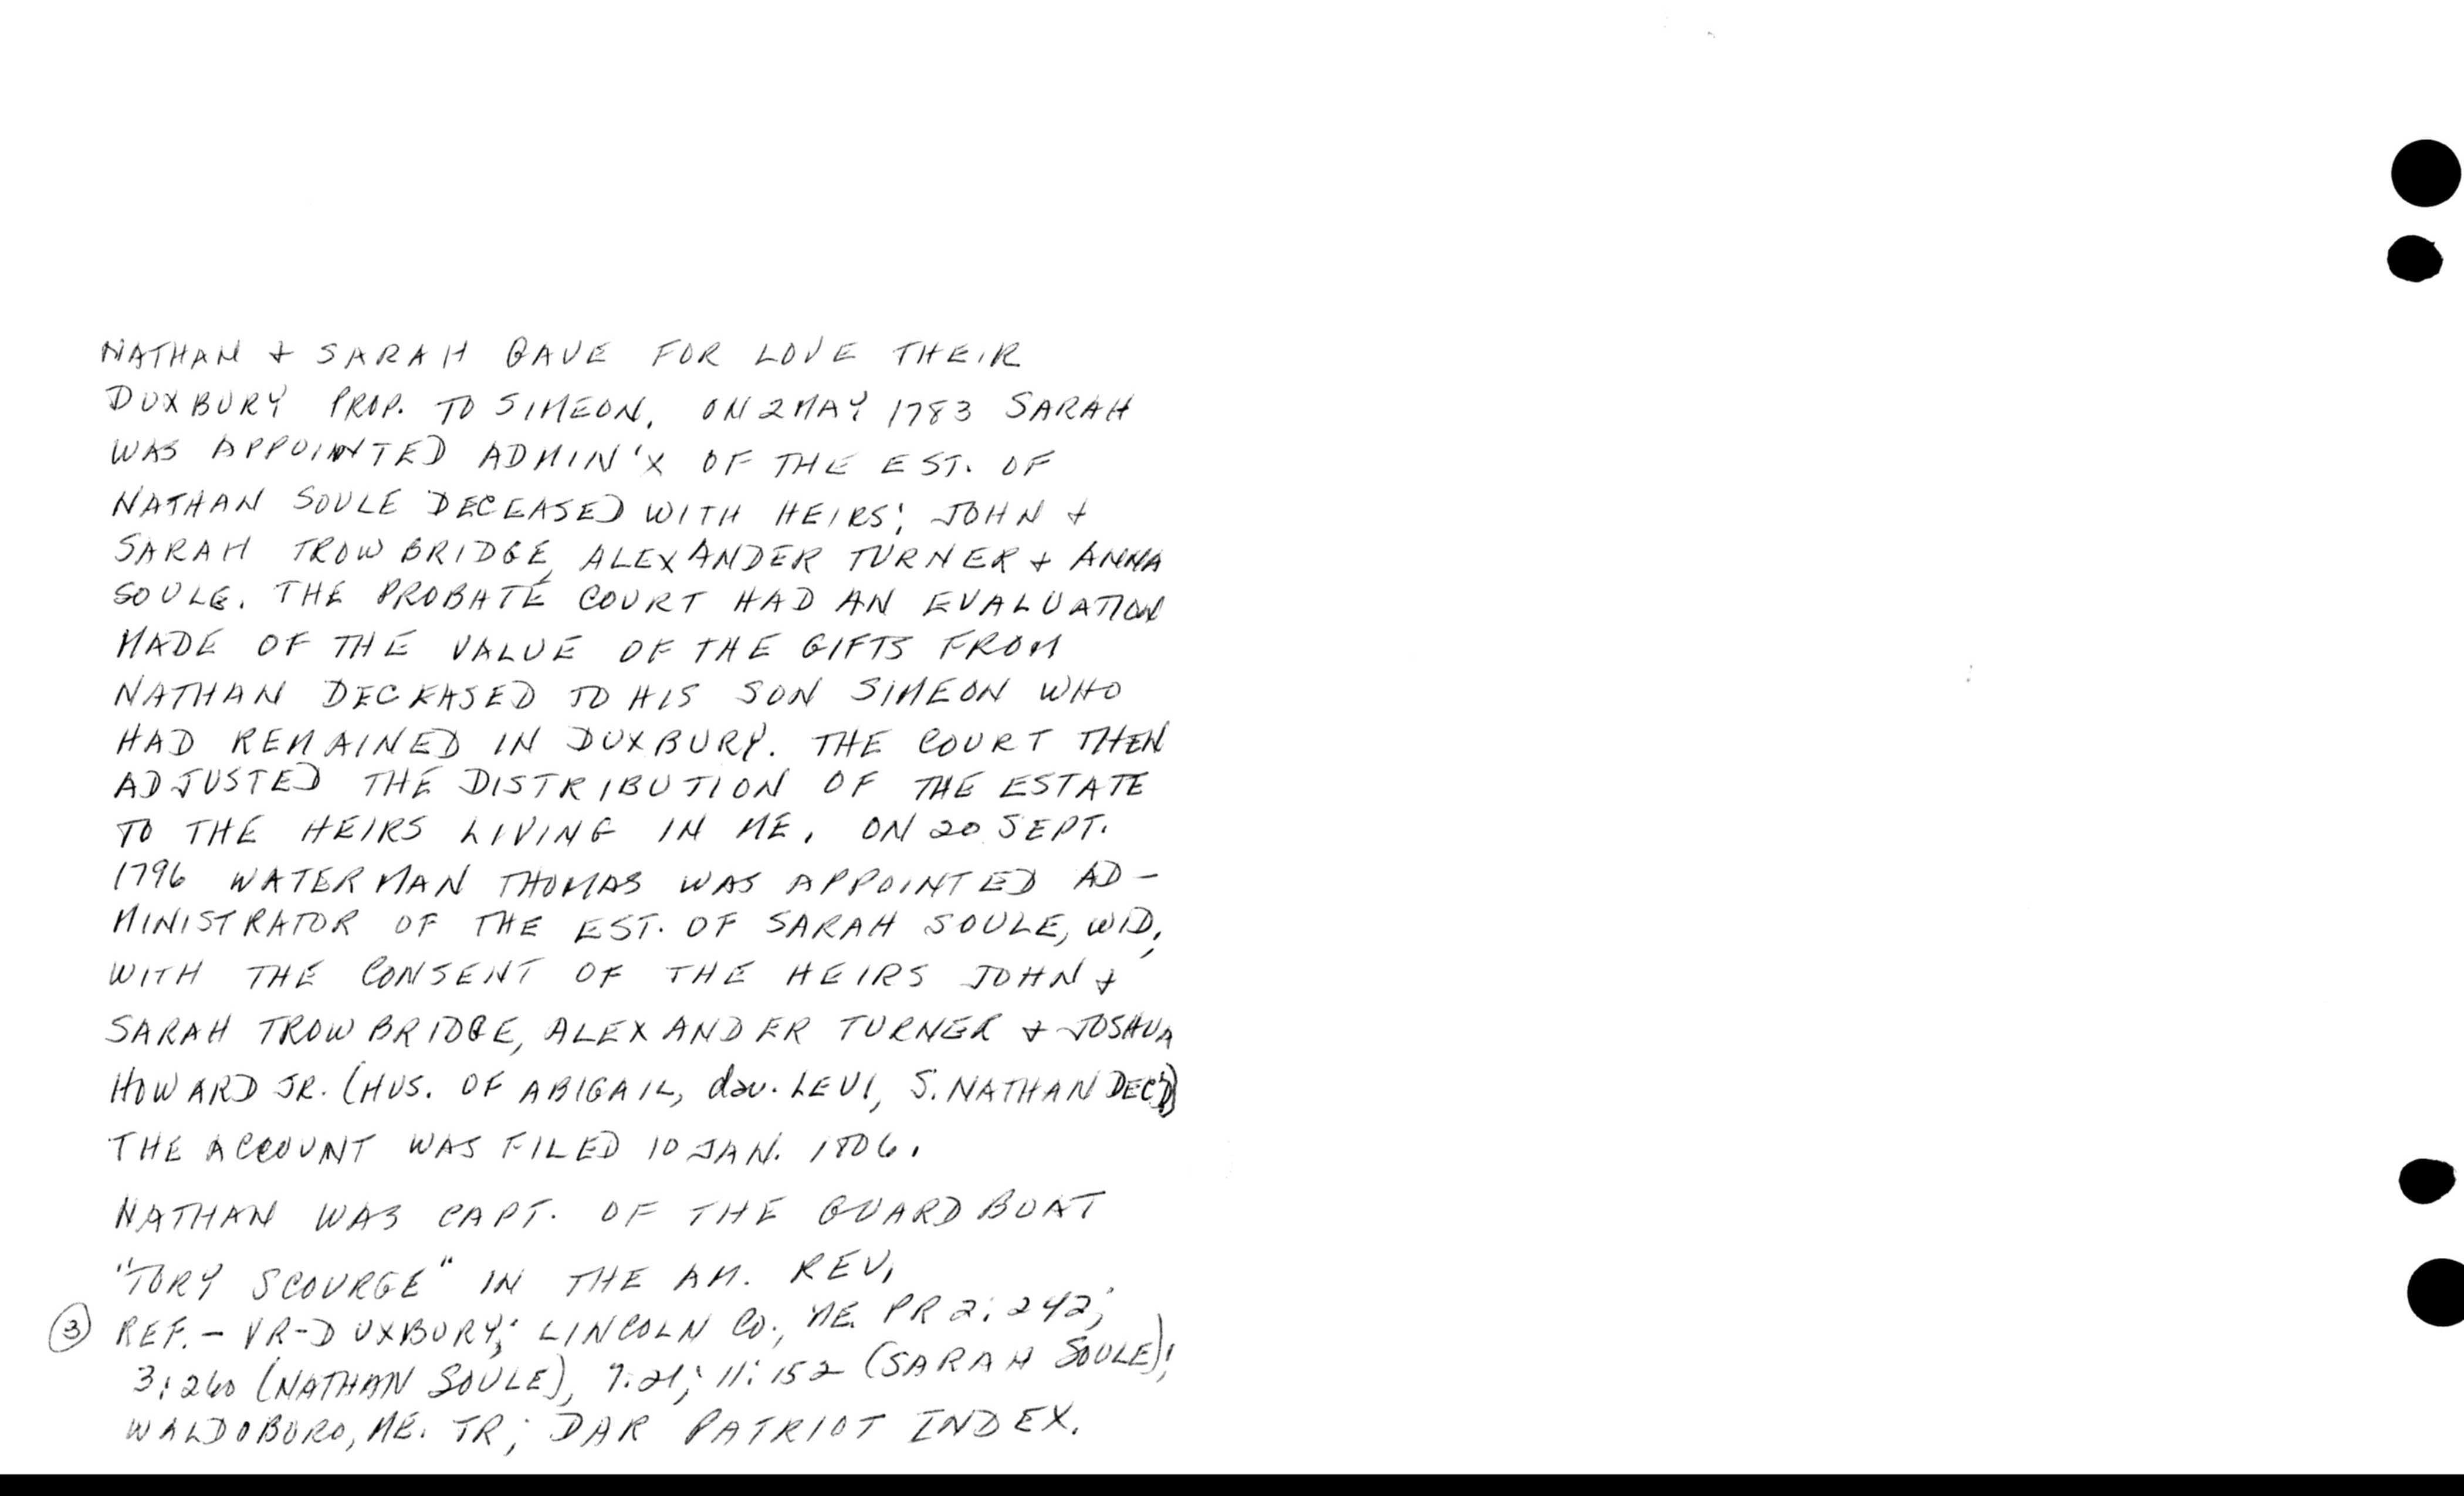 NATHAN + SARAH GAVE FOR LOVE THEIR
DUXBURY PROP. TO SIMEON. ON 2 MAY 1783 SARAH
WAS APPOINTED ADMIN'X OF THE EST. OF
NATHAN SOULE DECEASED WITH HEIRS: JOHN +
SARAH TROWBRIDGE, ALEXANDER TURNER + ANNA
SOULE. THE PROBATE COURT HAD AN EVALUATION
MADE OF THE VALUE OF THE GIFTS FROM
NATHAN DECEASED TO HIS SON SIMEON WHO
HAD REMAINED IN DUXBURY. THE COURT THEN
ADJUSTED THE DISTRIBUTION OF THE ESTATE
TO THE HEIRS LIVING IN ME. ON 20 SEPT.
1796 WATERMAN THOMAS WAS APPOINTED AD-
MINISTRATOR OF THE EST. OF SARAH SOULE, WID.,
WITH THE CONSENT OF THE HEIRS JOHN +
SARAH TROWBRIDGE, ALEXANDER TURNER + JOSHUA
HOWARD JR. (HUS. OF ABIGAIL, dau. LEVI, S. NATHAN DEC'D)
THE ACCOUNT WAS FILED 10 JAN. 1806.
NATHAN WAS CAPT. OF THE GUARD BOAT
"TORY SCOURGE" IN THE AM. REV.
③ REF. - VR-DUXBURY; LINCOLN CO., ME. PR 2:242;
3:260 (NATHAN SOULE), 7:21; 11:152 (SARAH SOULE);
WALDOBORO, ME. TR; DAR PATRIOT INDEX.